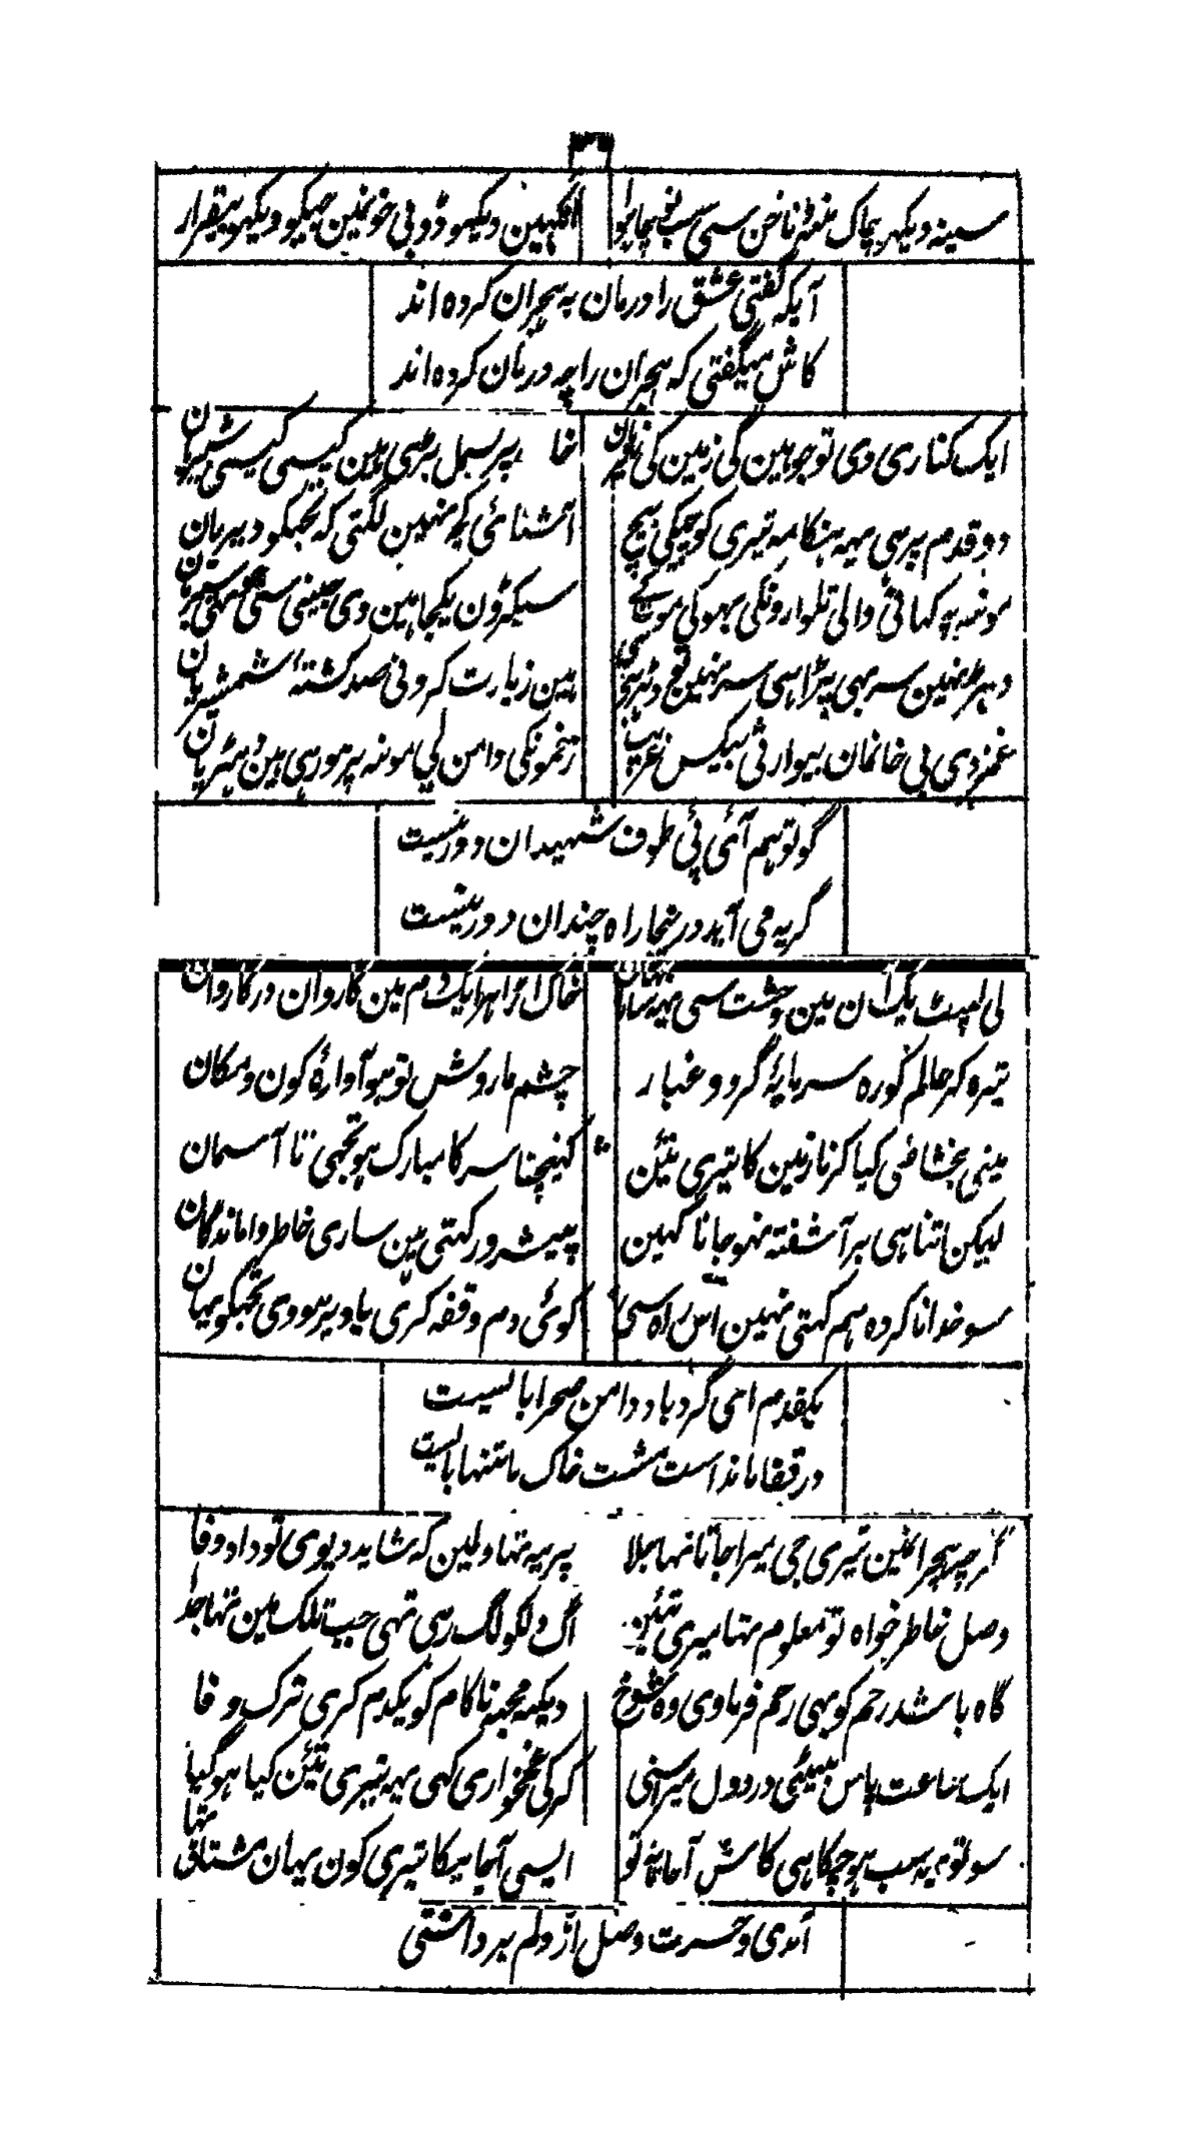 سینہ دیکھو چاک منہ ناخن سی سب نچا ہوا
انکہین دیکہو ڈوبی خونمین جیکو دیکہو بیقرار
آنکہ گفتی عشق را درمان بہ ہجران کردہ اند
کاش میگفتی کہ ہجران را چہ درمان کردہ اند
ایک کناری دی تو جو ہین گی زمین کی
پر سہل پڑی ہین کیسی کیسی شیریان
دو قدم پر ہی یہہ ہنکامہ تیری کوچیکی بیچ
آشنائی کچہ نہین لگتی کہ تجہکو دیریان
مونہہ پہ کہانی والی تلوارونکی بہوکی
سیکڑون یکجا ہین دی جینی سی
دہڑ نہین سر ہی پڑا ہی سر نہین تو دہڑ ہی
ہین زیارت کردنی صد کشتۂ شمشیریان
غمزدی بی خانمان بیوارثی بیکس غریب
زخمونکی دامن لی مونہہ پر ہو رہی ہین ڈہیریان
گو توہم آئی پئی طوف شہیدان دور نیست
گریہ می آید درینجا راہ چندان دور نیست
لی لپٹ یک آن مین وحشت سی یہہ سارا
خاک اڑا ہر ایک دم مین کاروان در کاروان
تیرہ کر عالم کو رہ سرمایۂ گرد و غبار
چشم ما روشن تو ہو آوارۂ کون و مکان
مینی بخشا طی کیا کرنا زمین کا تیری تئین
کہینچنا سر کا مبارک ہو تجہی تا آسمان
لیکن اتنا ہی بر آشفتہ نہو جانا کہین
پیشرو رکہتی ہین ساری خاطر واماندگان
سو خدانا کردہ ہم کہتی نہین اس راہ سی
کوئی دم وقفہ کری یا دیر ہووی تجہکو یہان
یکقدم ای گردباد دامن صحرا بالیست
در قفا ماندہ است مشت خاک ما تنہا بالیست
گرچہ ہجرانمین تیری جی میرا جاتا نہا بہلا
پر یہہ تہا دلمین کہ شاید دیوی تو داد وفا
وصل خاطر خواہ تو معلوم تہا میری تئین
اگ دلکو لگ رہی تہی جب تلک مین تہا جدا
گاہ باشد رحم کو بہی رحم فرماوی وہ شوخ
دیکہہ مجہہ ناکام کو یکدم کری ترک و فا
ایک ساعت پاس بیٹہی درد دل میرا سنی
کرکی غمخواری کہی یہہ تیری تئین کیا ہو گیا
سو تو یہہ سب ہو چکا ہی کاش آتا نہ تو
ایسی آجانیکا تیری کون یہان مشتاق تہا
آمدی و حسرت وصل از دلم برداشتی